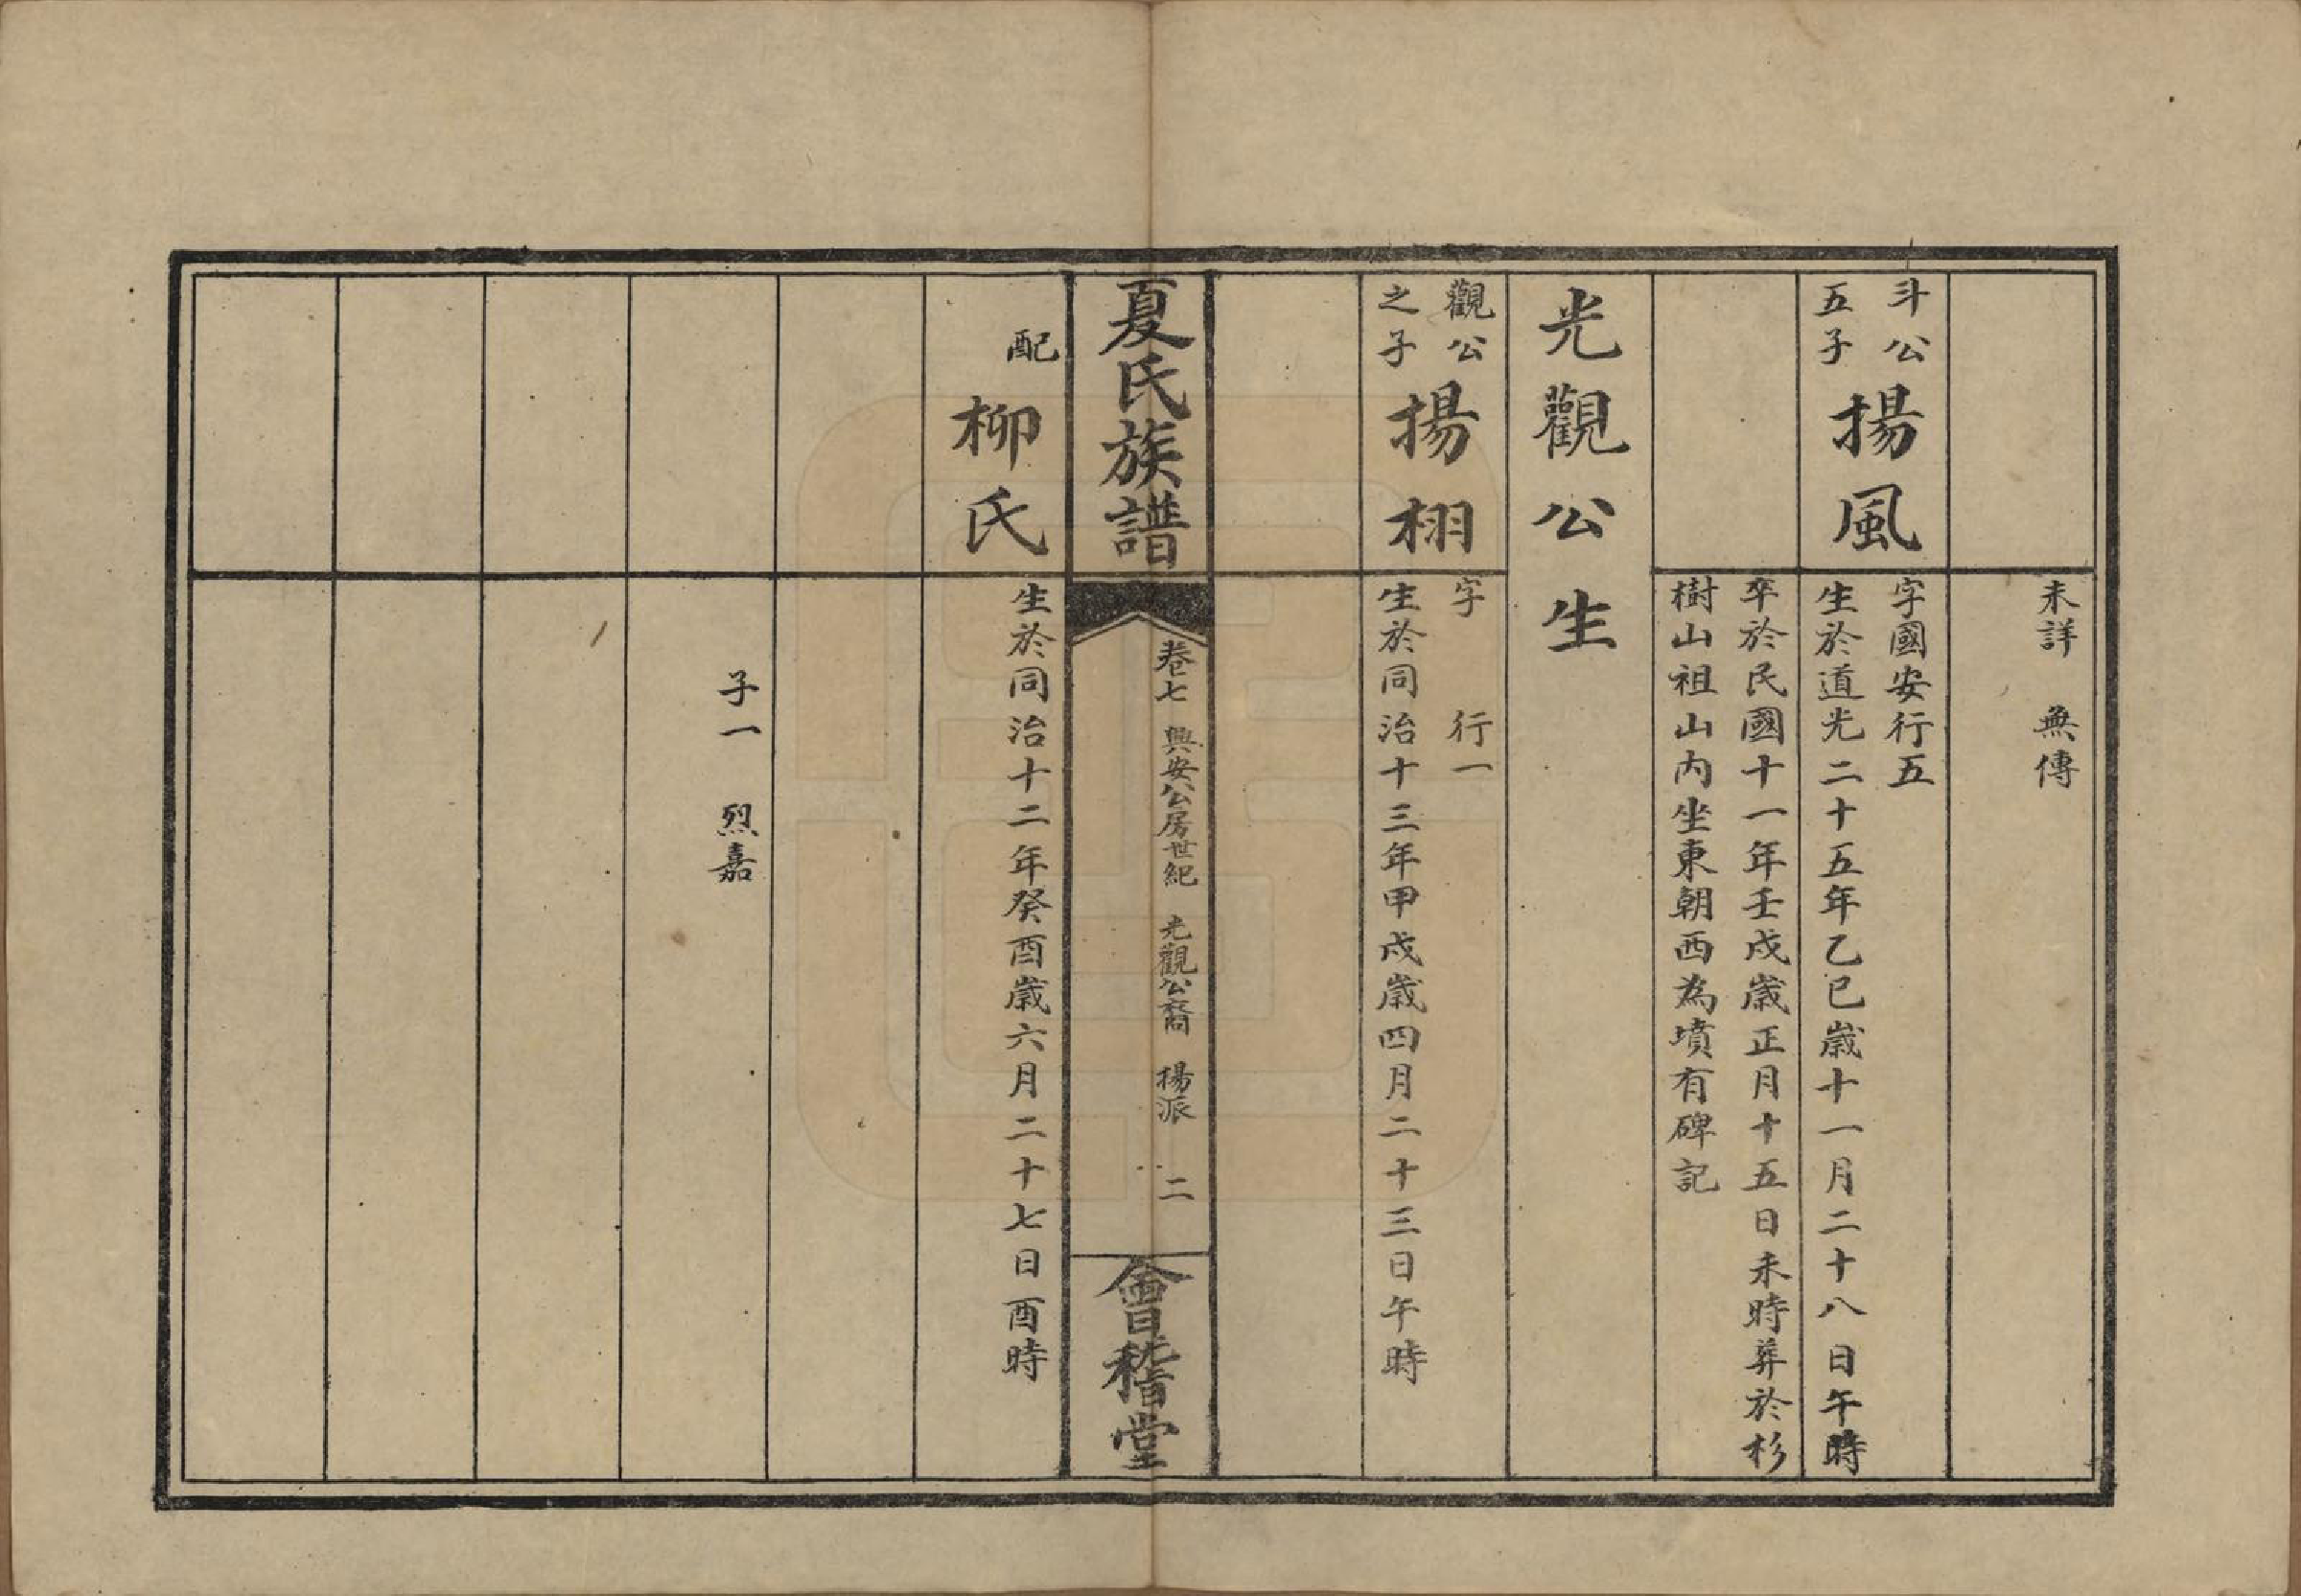 未詳　無傳
斗公
五子
揚風
字國安行五
生於道光二十五年乙巳歲十一月二十八日午時
卒於民國十一年壬戌歲正月十五日未時葬於杉
樹山祖山內坐東朝西為墳有碑記
光觀公生
觀公
之子
揚栩
字　　行一
生於同治十三年甲戌歲四月二十三日午時
夏氏族譜
卷七　興安公房世紀　光觀公裔　楊派　二
會稽堂
配
柳氏
生於同治十二年癸酉歲六月二十七日酉時
子一　烈嘉